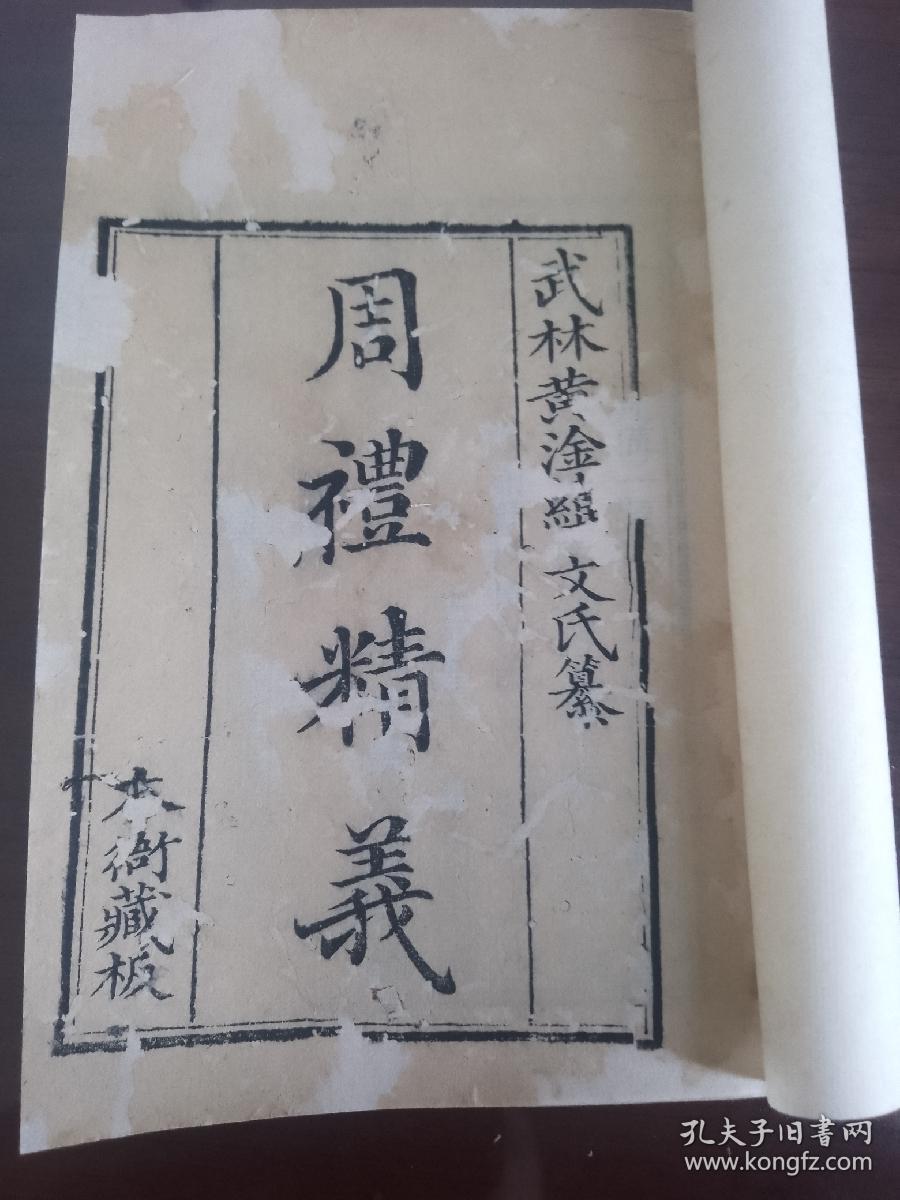 武林黄淦緝文氏纂
周禮精義
本衙藏板
孔夫子旧書网
www.kongfz.com